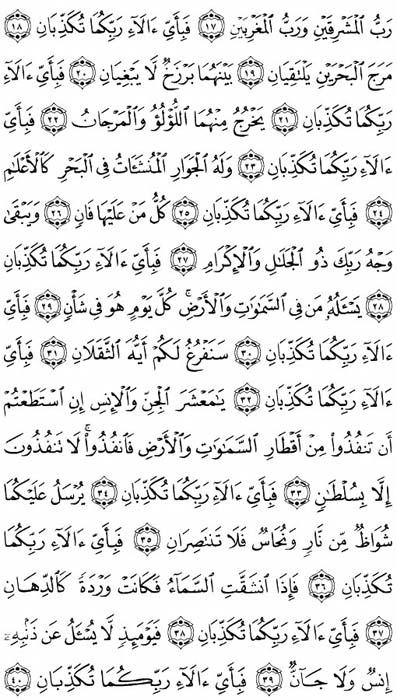 رَبُّ الْمَشْرِقَيْنِ وَرَبُّ الْمَغْرِبَيْنِ ١٧ فَبِأَيِّ ءَالَآءِ رَبِّكُمَا تُكَذِّبَانِ ١٨
مَرَجَ الْبَحْرَيْنِ يَلْتَقِيَانِ ١٩ بَيْنَهُمَا بَرْزَخٌ لَّا يَبْغِيَانِ ٢٠ فَبِأَيِّ ءَالَآءِ
رَبِّكُمَا تُكَذِّبَانِ ٢١ يَخْرُجُ مِنْهُمَا اللُّؤْلُؤُ وَالْمَرْجَانُ ٢٢ فَبِأَيِّ
ءَالَآءِ رَبِّكُمَا تُكَذِّبَانِ ٢٣ وَلَهُ الْجَوَارِ الْمُنشَئَاتُ فِي الْبَحْرِ كَالْأَعْلَٰمِ
٢٤ فَبِأَيِّ ءَالَآءِ رَبِّكُمَا تُكَذِّبَانِ ٢٥ كُلُّ مَنْ عَلَيْهَا فَانٍ ٢٦ وَيَبْقَىٰ
وَجْهُ رَبِّكَ ذُو الْجَلَالِ وَالْإِكْرَامِ ٢٧ فَبِأَيِّ ءَالَآءِ رَبِّكُمَا تُكَذِّبَانِ
٢٨ يَسْـَٔلُهُۥ مَن فِي السَّمَٰوَٰتِ وَالْأَرْضِ ۚ كُلَّ يَوْمٍ هُوَ فِي شَأْنٍ ٢٩ فَبِأَيِّ
ءَالَآءِ رَبِّكُمَا تُكَذِّبَانِ ٣٠ سَنَفْرُغُ لَكُمْ أَيُّهَ الثَّقَلَانِ ٣١ فَبِأَيِّ
ءَالَآءِ رَبِّكُمَا تُكَذِّبَانِ ٣٢ يَٰمَعْشَرَ الْجِنِّ وَالْإِنسِ إِنِ اسْتَطَعْتُمْ
أَن تَنفُذُوا۟ مِنْ أَقْطَارِ السَّمَٰوَٰتِ وَالْأَرْضِ فَانفُذُوا۟ ۚ لَا تَنفُذُونَ
إِلَّا بِسُلْطَٰنٍ ٣٣ فَبِأَيِّ ءَالَآءِ رَبِّكُمَا تُكَذِّبَانِ ٣٤ يُرْسَلُ عَلَيْكُمَا
شُوَاظٌ مِّن نَّارٍ وَنُحَاسٌ فَلَا تَنتَصِرَانِ ٣٥ فَبِأَيِّ ءَالَآءِ رَبِّكُمَا
تُكَذِّبَانِ ٣٦ فَإِذَا انشَقَّتِ السَّمَآءُ فَكَانَتْ وَرْدَةً كَالدِّهَانِ
٣٧ فَبِأَيِّ ءَالَآءِ رَبِّكُمَا تُكَذِّبَانِ ٣٨ فَيَوْمَئِذٍ لَّا يُسْـَٔلُ عَن ذَنۢبِهِۦٓ
إِنسٌ وَلَا جَآنٌّ ٣٩ فَبِأَيِّ ءَالَآءِ رَبِّكُمَا تُكَذِّبَانِ ٤٠